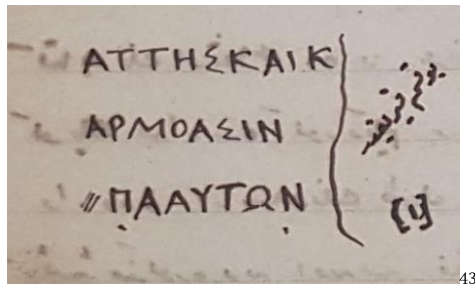 ΑΤΤΗΣΚΑΙΚ
ΑΡΜΟΑΣΙΝ
ΠΑΑΥΤΩΝ
[1]
43